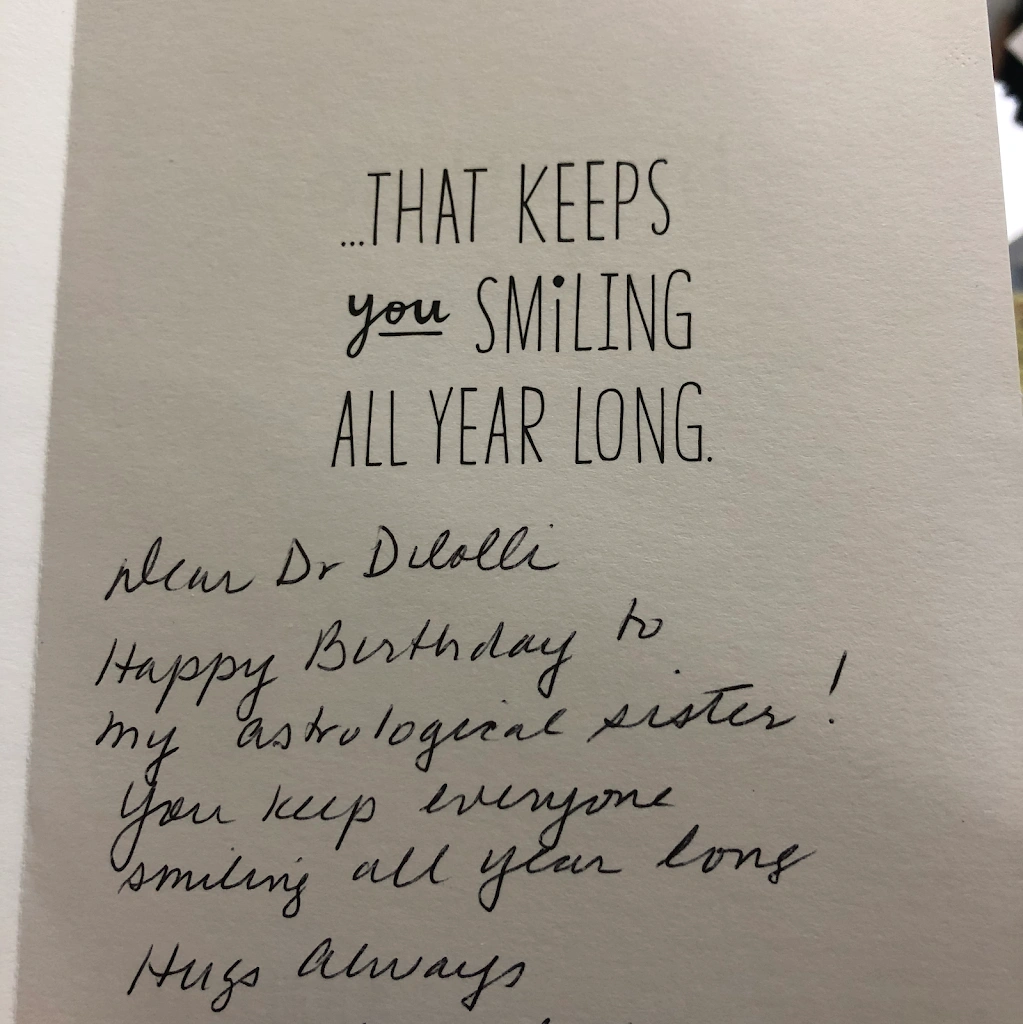 ...THAT KEEPS
you SMiLING
ALL YEAR LONG.
Dear Dr Dilolli
Happy Birthday to
my astrological sister!
You keep everyone
smiling all year long
Hugs Always